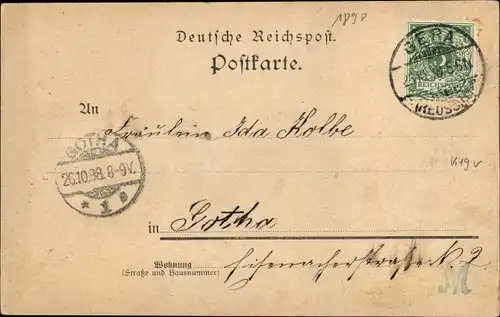 1898
Deutsche Reichspost.
Postkarte.
GERA
REICHSPOST
(REUSS)
An
Fräulein Ida Kolbe
GOTHA
26.10.98. 8-9V.
* 1 e
K19v
in Gotha
Wohnung
(Straße und Hausnummer)
Eisenacherstraße N. 2
M